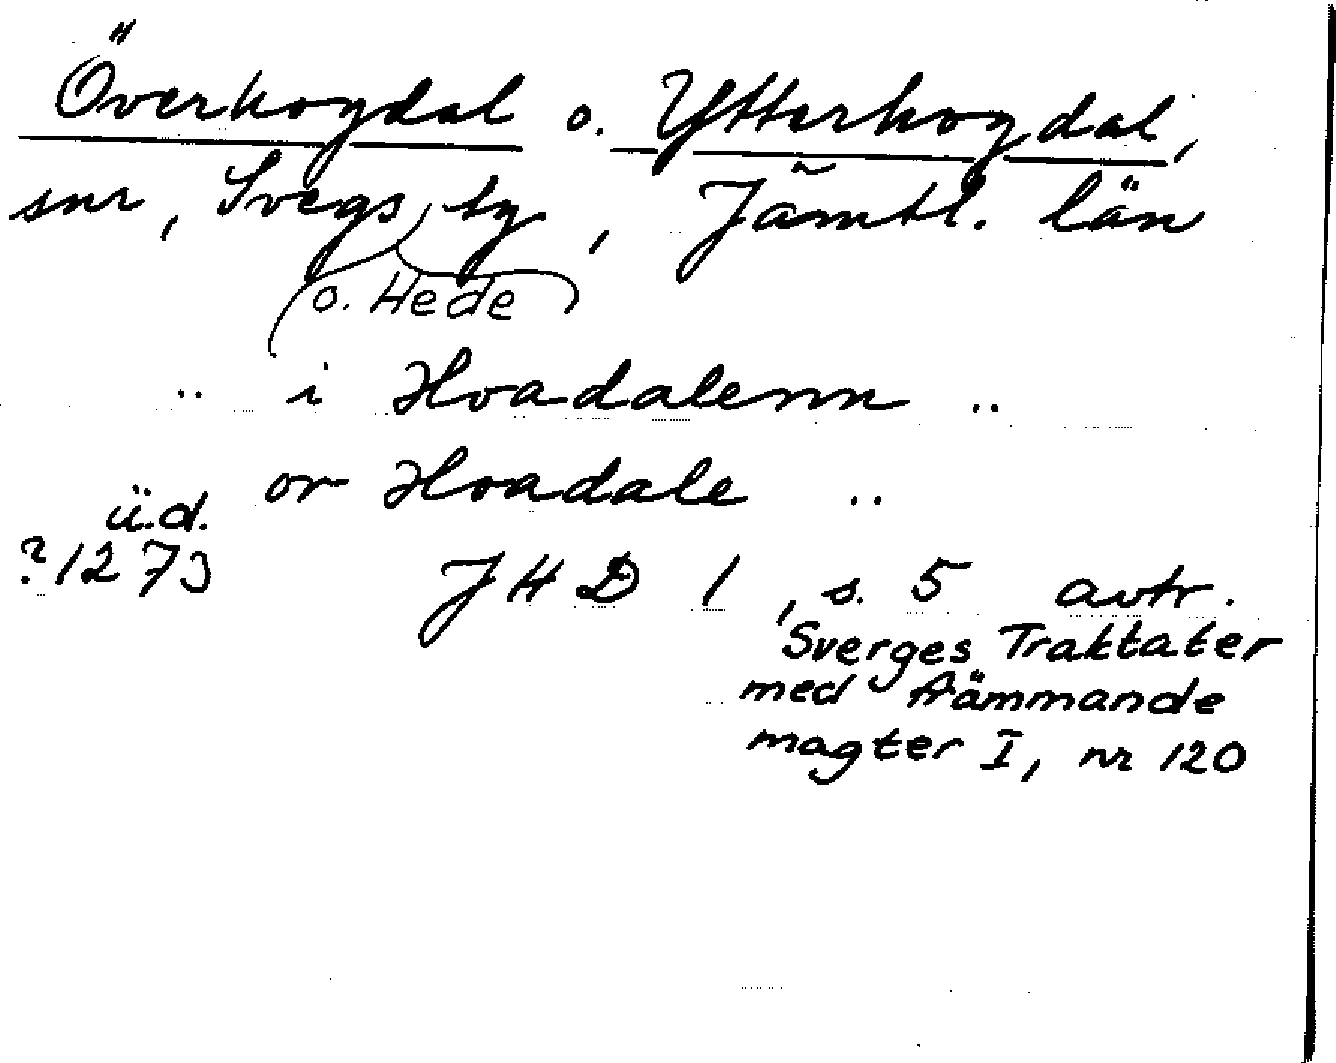 Överhogdal o. Ytterhogdal,
snr, Svegs o. Hede tg, Jämtl. län
.. i Hvadalenm ..
or Hvadale ..
u.d.
?1273 JHD 1, s. 5 avtr.
Sverges Traktater
med främmande
magter I, nr 120